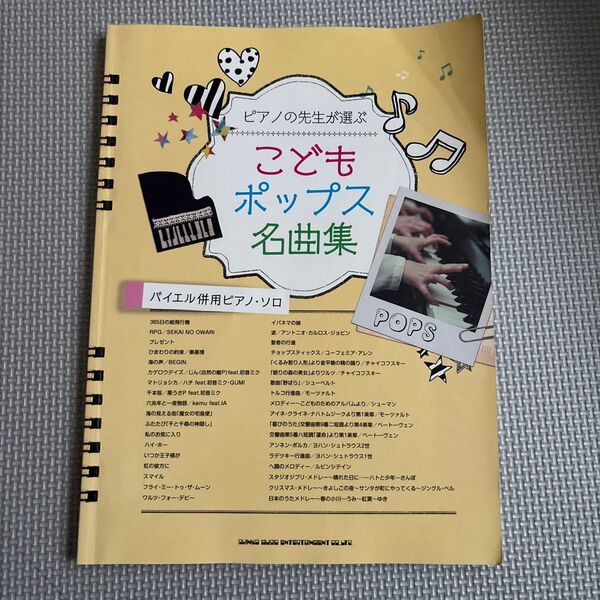 ピアノの先生が選ぶ
こども
ポップス
名曲集
バイエル併用ピアノ・ソロ
POPS
365日の紙飛行機
RPG／SEKAI NO OWARI
プレゼント
ひまわりの約束／秦基博
海の声／BEGIN
カゲロウデイズ／じん(自然の敵P)feat.初音ミク
マトリョシカ／ハチ feat.初音ミク・GUMI
千本桜／黒うさP feat.初音ミク
六兆年と一夜物語／kemu feat.IA
海の見える街「魔女の宅急便」
ふたたび「千と千尋の神隠し」
私のお気に入り
ハイ・ホー
いつか王子様が
虹の彼方に
スマイル
フライ・ミー・トゥ・ザ・ムーン
ワルツ・フォー・デビー
イパネマの娘
波／アントニオ・カルロス・ジョビン
聖者の行進
チョップスティックス／ユーフェミア・アレン
「くるみ割り人形」より金平糖の精の踊り／チャイコフスキー
「眠りの森の美女」よりワルツ／チャイコフスキー
歌曲「野ばら」／シューベルト
トルコ行進曲／モーツァルト
メロディー～こどものためのアルバムより／シューマン
アイネ・クライネ・ナハトムジークより第1楽章／モーツァルト
「喜びのうた」交響曲第9番ニ短調より第4楽章／ベートーヴェン
交響曲第5番ハ短調「運命」より第1楽章／ベートーヴェン
アンネン・ポルカ／ヨハン・シュトラウス2世
ラデツキー行進曲／ヨハン・シュトラウス1世
ヘ調のメロディー／ルビンシテイン
スタジオジブリ・メドレー～晴れた日に…～ハトと少年～さんぽ
クリスマス・メドレー～きよしこの夜～サンタが町にやってくる～ジングル・ベル
日本のうたメドレー～春の小川～うみ～紅葉～ゆき
SHINKO MUSIC ENTERTAINMENT CO.,LTD.